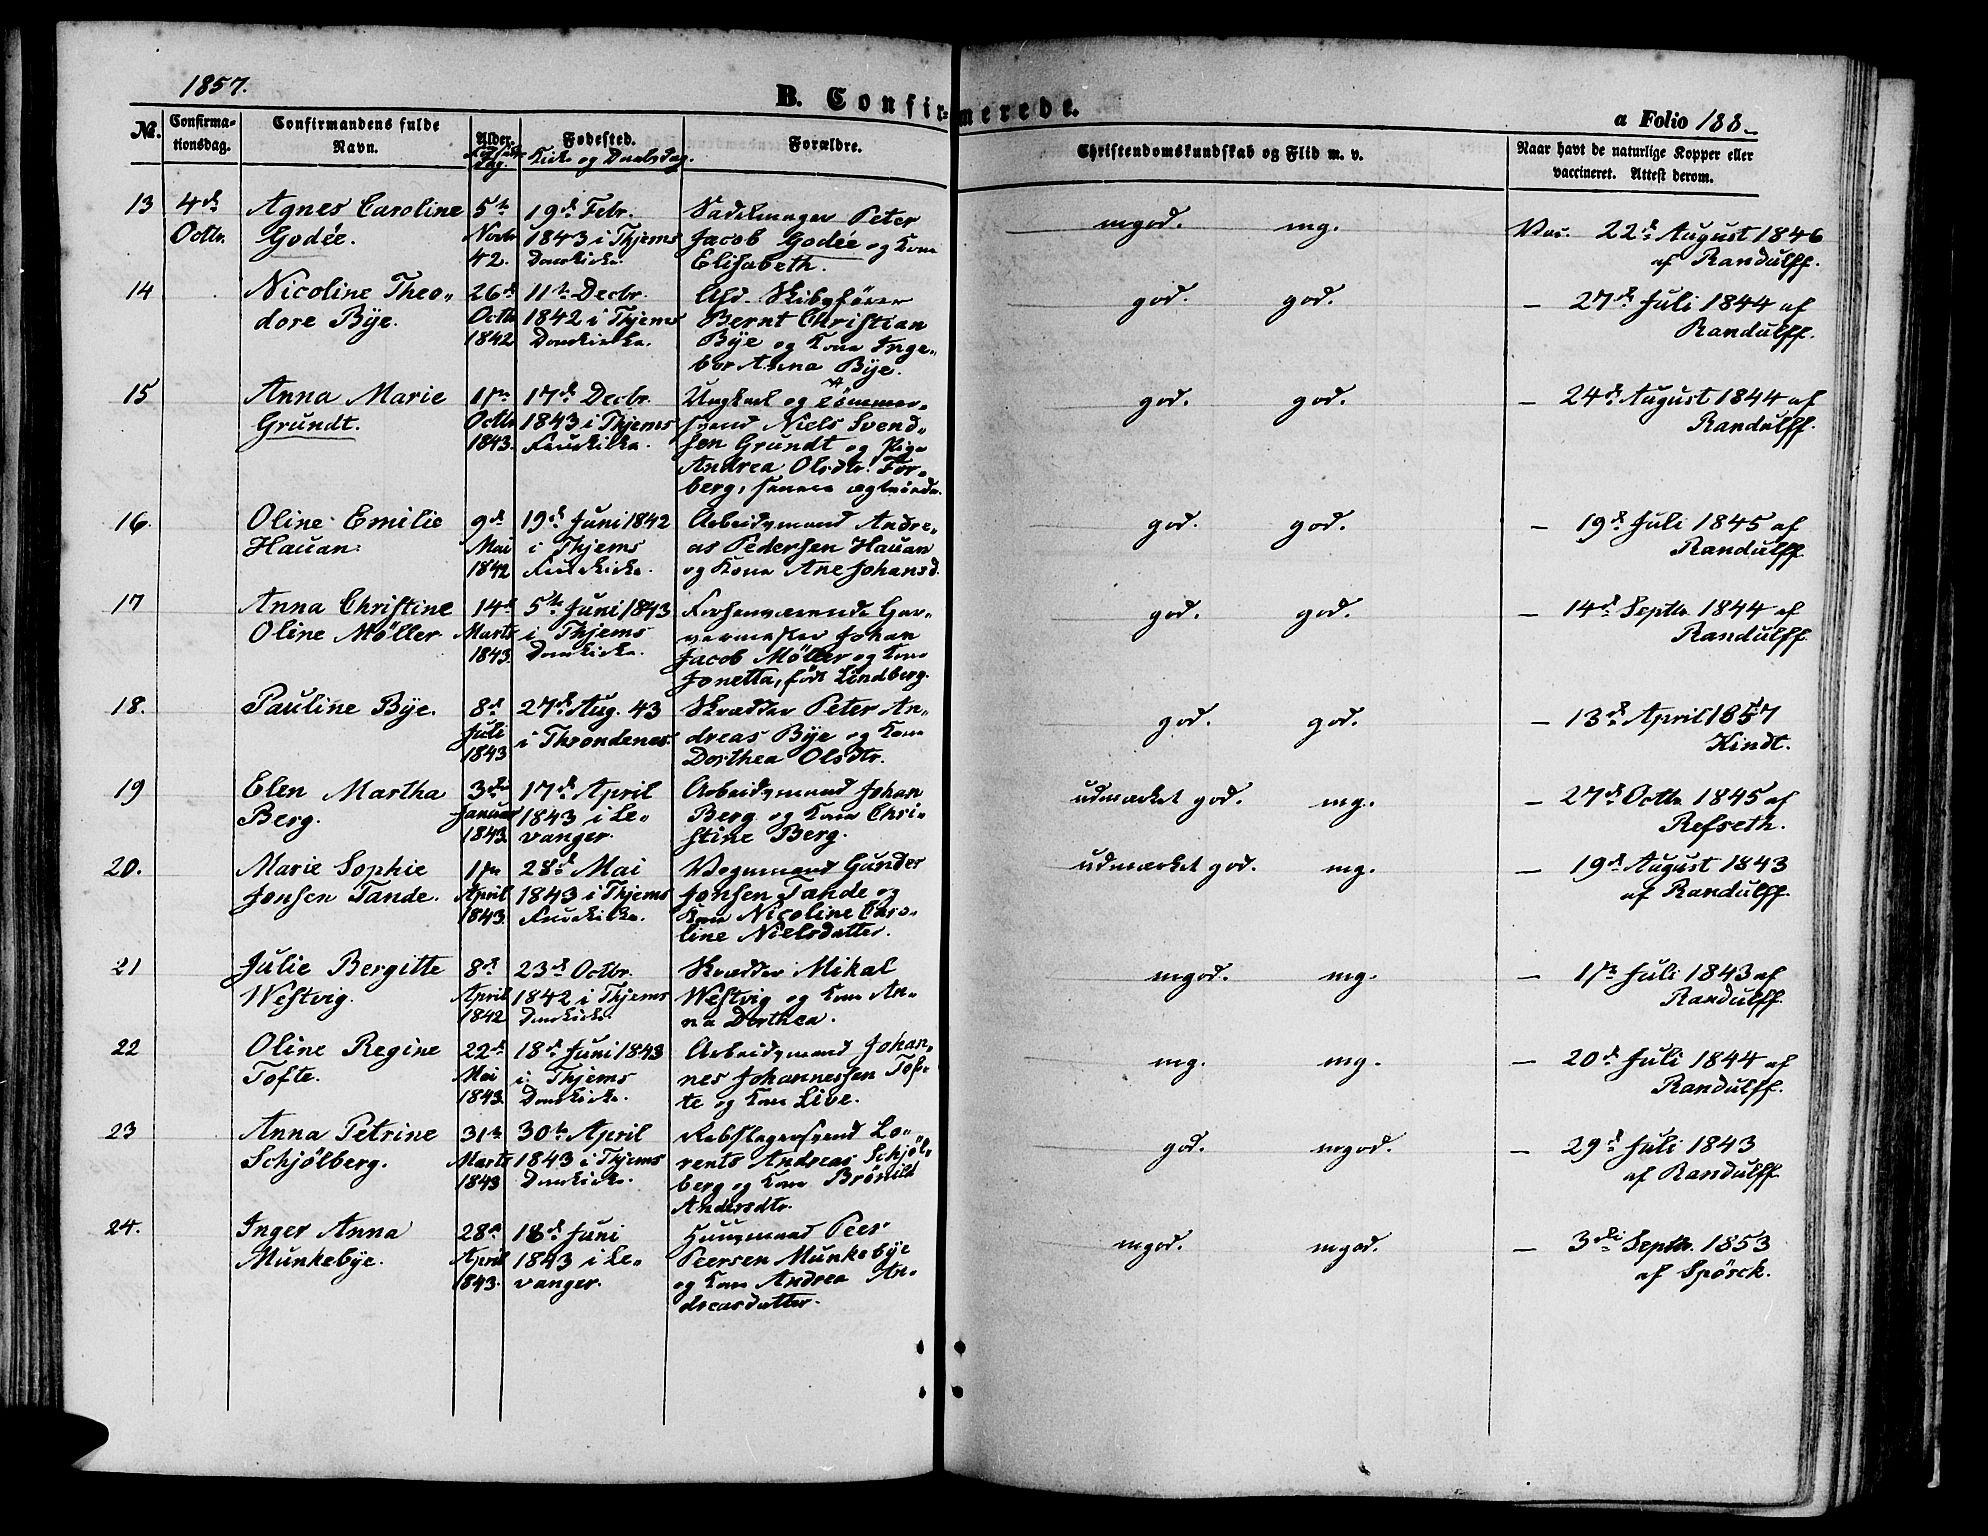 1857.
B. Confirmerede.
a Folio 188.
No.
Confirmationsdag.
Confirmandens fulde Navn.
Alder.
Fødested.
Kirke og Daabsdag.
Forældre.
Christendomskundskab og Flid m. v.
Naar havt de naturlige Kopper eller vaccineret. Attest derom.
13 4de Agnes Caroline 5te 19de Febr. Sadelmager Peter mgod. mg. Vac. 22de August 1846
Octbr. Godée. Novbr 1843 i Thjems Jacob Godée og Kone af Randulff.
42. Domkirke. Elisabeth.
14 Nicoline Theo- 26de 11te Decbr. Afd. Skibsfører god. god. — 27de Juli 1844 af
dore Bÿe. Octbr 1842 i Thjems Bernt Christian Randulff.
1842 Domkirke. Bÿe og Kone Inge-
bor Anna Bÿe.
15 Anna Marie 1ste 17de Decbr. Ungkarl og Tømmer- god. god. — 24de August 1844 af
Grundt. Octbr 1843 i Thjems svend Niels Svend- Randulff.
1843. Fruekirke. sen Grundt og Pige
Andrea Olsdtr. For-
berg, senere ægteviede.
16. Oline Emilie 9de 19de Juni 1842 Arbeidsmand Andre- god. god. — 19de Juli 1845 af
Hauan. Mai i Thjems as Pedersen Hauan Randulff.
1842 Fruekirke. og Kone Ane Johansd.
17 Anna Christine 14de 5te Juni 1843 Forhenværende Gar- god. god. — 14de Septbr 1844 af
Oline Møller Marts i Thjems vermester Johan Randulff.
1843. Domkirke. Jacob Møller og Kone
Jonetta, født Lindberg.
18. Pauline Bÿe. 8de 27de Aug. 43 Skrædder Peter An- god. god. — 13de April 1857
Juli i Throndenes. dreas Bÿe og Kone Kindt.
1843 Dorthea Olsdtr.
19 Elen Martha 3die 17de April Arbeidsmand Johan udmærket god. mg. — 27de Octbr 1845 af
Berg. Januar 1843 i Le- Berg og Kone Chri- Refseth.
1843. vanger. stine Berg.
20. Marie Sophie 1ste 28de Mai Vognmand Gunder udmærket god. mg. — 19de August 1843
Jonsen Tande. April 1843 i Thjems Jonsen Tande og af Randulff.
1843. Fruekirke. Kone Nicoline Caro-
line Nielsdatter.
21 Julie Bergitte 8de 23de Octbr. Skrædder Mikal mgod. mg. — 1ste Juli 1843 af
Westvig. April 1842 i Thjems Westvig og Kone An- Randulff.
1842 Domkirke. na Dorthea.
22 Oline Regine 22de 18de Juni 1843 Arbeidsmand Johan- mg. mg. — 20de Juli 1844 af
Tofte. Mai i Thjems nes Johannessen Tof- Randulff.
1843. Domkirke. te og Kone Live.
23 Anna Petrine 31te 30te April Rebslagersvend Lo- god. mgod. — 29de Juli 1843
Schjölberg. Marts 1843 i Thjems rents Andreas Schjöl- af Randulff.
1843 Domkirke. berg og Kone Brönild
Andersdtr.
24. Inger Anna 28de 18de Juni Huusmand Peer mgod. mgod. — 3die Septbr. 1853
Munkebÿe. April 1843 i Le- Peersen Munkebÿe af Spörck.
1843. vanger. og Kone Andrea An-
dreasdatter.